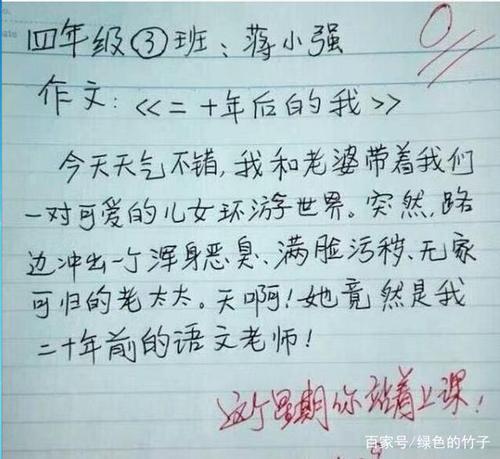 四年级③班：蒋小强
0
作文：《二十年后的我》
今天天气不错，我和老婆带着我们
一对可爱的儿女环游世界。突然，路
边冲出一个浑身恶臭、满脸污秽、无家
可归的老太太。天啊！她竟然是我
二十年前的语文老师！
这个星期你站着上课！
百家号/绿色的竹子